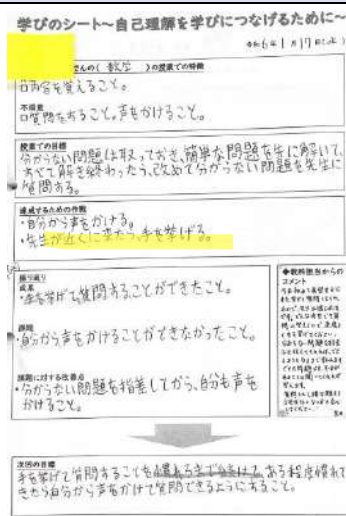 学びのシート～自己理解を学びにつなげるために～
令和6年1月17日(水)
さんの( 数学 )の授業での特徴
内容を覚えること。
不得意
質問をすること。声をかけること。
授業での目標
分からない問題は取っておき、簡単な問題を先に解いて、
すべて解き終わったら、改めて分からない問題を先生に
質問する。
達成するための作戦
・自分から声をかける。
・先生が近くに来たら、手を挙げる。
振り返り
成果
・手を挙げて質問することができたこと。
課題
・自分から声をかけることができなかったこと。
課題に対する改善点
・分からない問題を指差してから、自分も声を
かけること。
◆教科担当からの
コメント
次回の目標
手を挙げて質問することを慣れるまで続けて、ある程度慣れて
きたら自分から声をかけて質問できるようにすること。